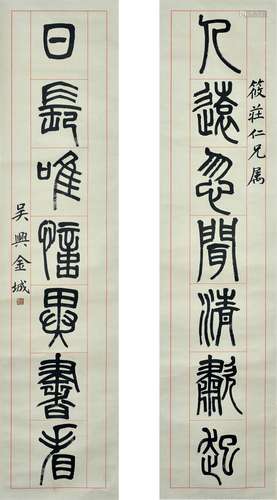 筱莊仁兄属
人遠忽聞清歗起
日長唯憶異書看
吳興金城